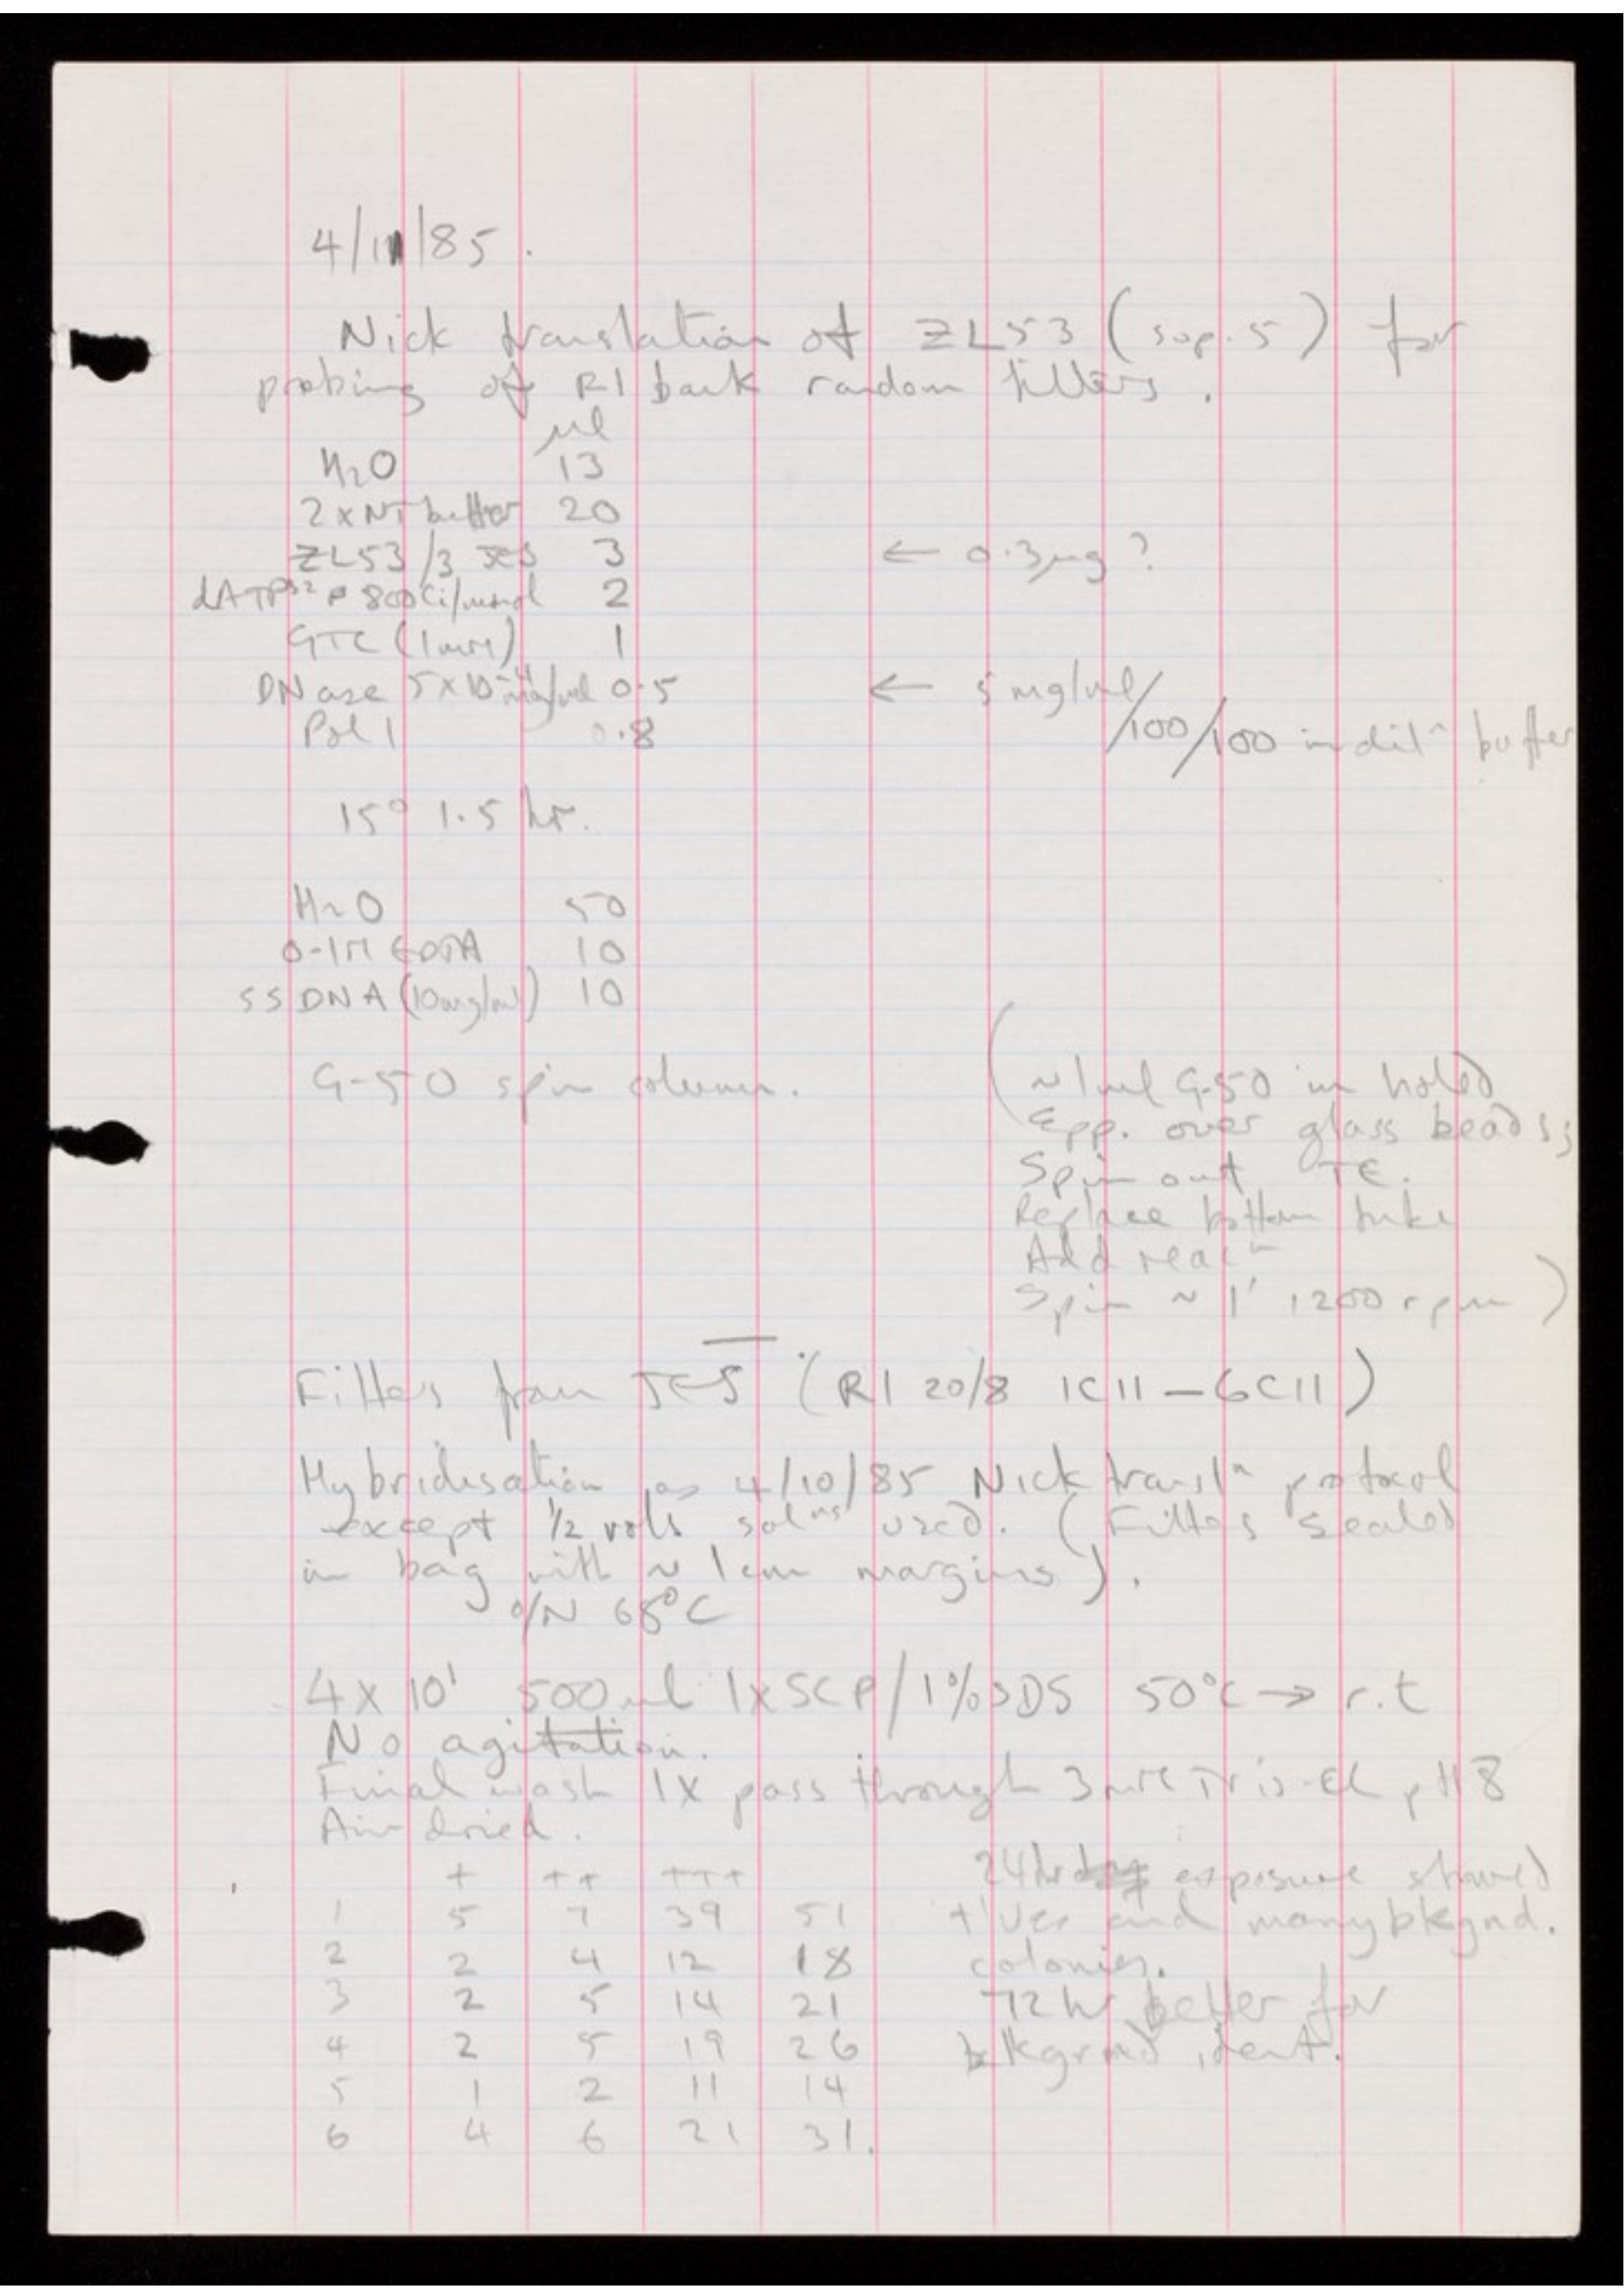 4/11/85.
Nick translation of ZL53 (sup. 5) for
probing of R1 bank random filters.
μl
H2O 13
2xNT buffer 20
ZL53/3 JES 3 ← 0.3μg?
dATP32P 800Ci/mmol 2
GTC (1mM) 1
DNase 5x10-4mg/ml 0.5 ← 5mg/ml/100/100 in diln buffer
Pol 1 0.8
15° 1.5 hr.
H2O 50
0.1M EDTA 10
SS DNA (10mg/ml) 10
G-50 spin column. (~1ml G-50 in holed
Epp. over glass beads;
Spin out TE.
Replace bottom tube
Add reacn
Spin ~ 1' 1200 rpm)
Filters from JES (R1 20/8 1C11 – 6C11)
Hybridisation as 4/10/85 Nick transln protocol
except 1/2 vols solns used. (Filters sealed
in bag with ~ 1cm margins).
o/N 68°C
4x10' 500ml 1xSCP/1%SDS 50°C → r.t
No agitation.
Final wash 1X pass through 3mM Tris-Cl pH8
Air dried.
+ ++ +++ 24hr exposure showed
1 5 7 39 51 +'ves and many bkgnd.
2 2 4 12 18 colonies.
3 2 5 14 21 72hr better for
4 2 5 19 26 bkgrnd ident.
5 1 2 11 14
6 4 6 21 31.